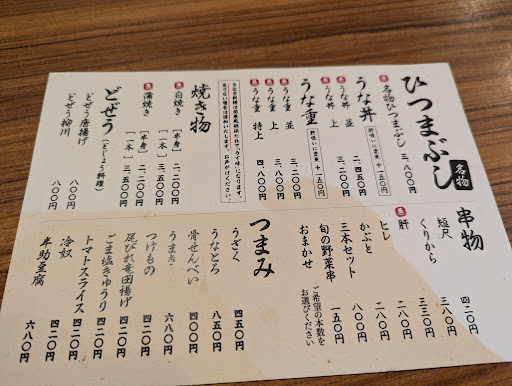 ひつまぶし 名物
名物ひつまぶし 三、八〇〇円
うな丼 肝吸いに変更 +一五〇円
うな丼 並 二、四五〇円
うな丼 上 三、二〇〇円
うな重 肝吸いに変更 +一五〇円
うな重 並
うな重 上
うな重 特上 四、八〇〇円
お声がけください。
焼き物
白焼き [半身] 二、二〇〇円
[一本] 三、五〇〇円
蒲焼き [半身] 二、二〇〇円
[一本] 三、五〇〇円
どぜう(どじょう料理)
どぜう唐揚げ 八〇〇円
どぜう柳川 八〇〇円
串物
短尺 四二〇円
くりから 三八〇円
肝 三三〇円
ヒレ 二八〇円
かぶと 二八〇円
三本セット 八〇〇円
旬の野菜串 一五〇円
おまかせ ご希望の本数を
お選びください
つまみ
うざく 四五〇円
うなとろ 八五〇円
骨せんべい 四〇〇円
うまき 六八〇円
つけもの 四二〇円
尾びれ竜田揚げ 四二〇円
ごま塩きゅうり 四二〇円
トマトスライス 四二〇円
冷奴 四二〇円
半助豆腐 六八〇円